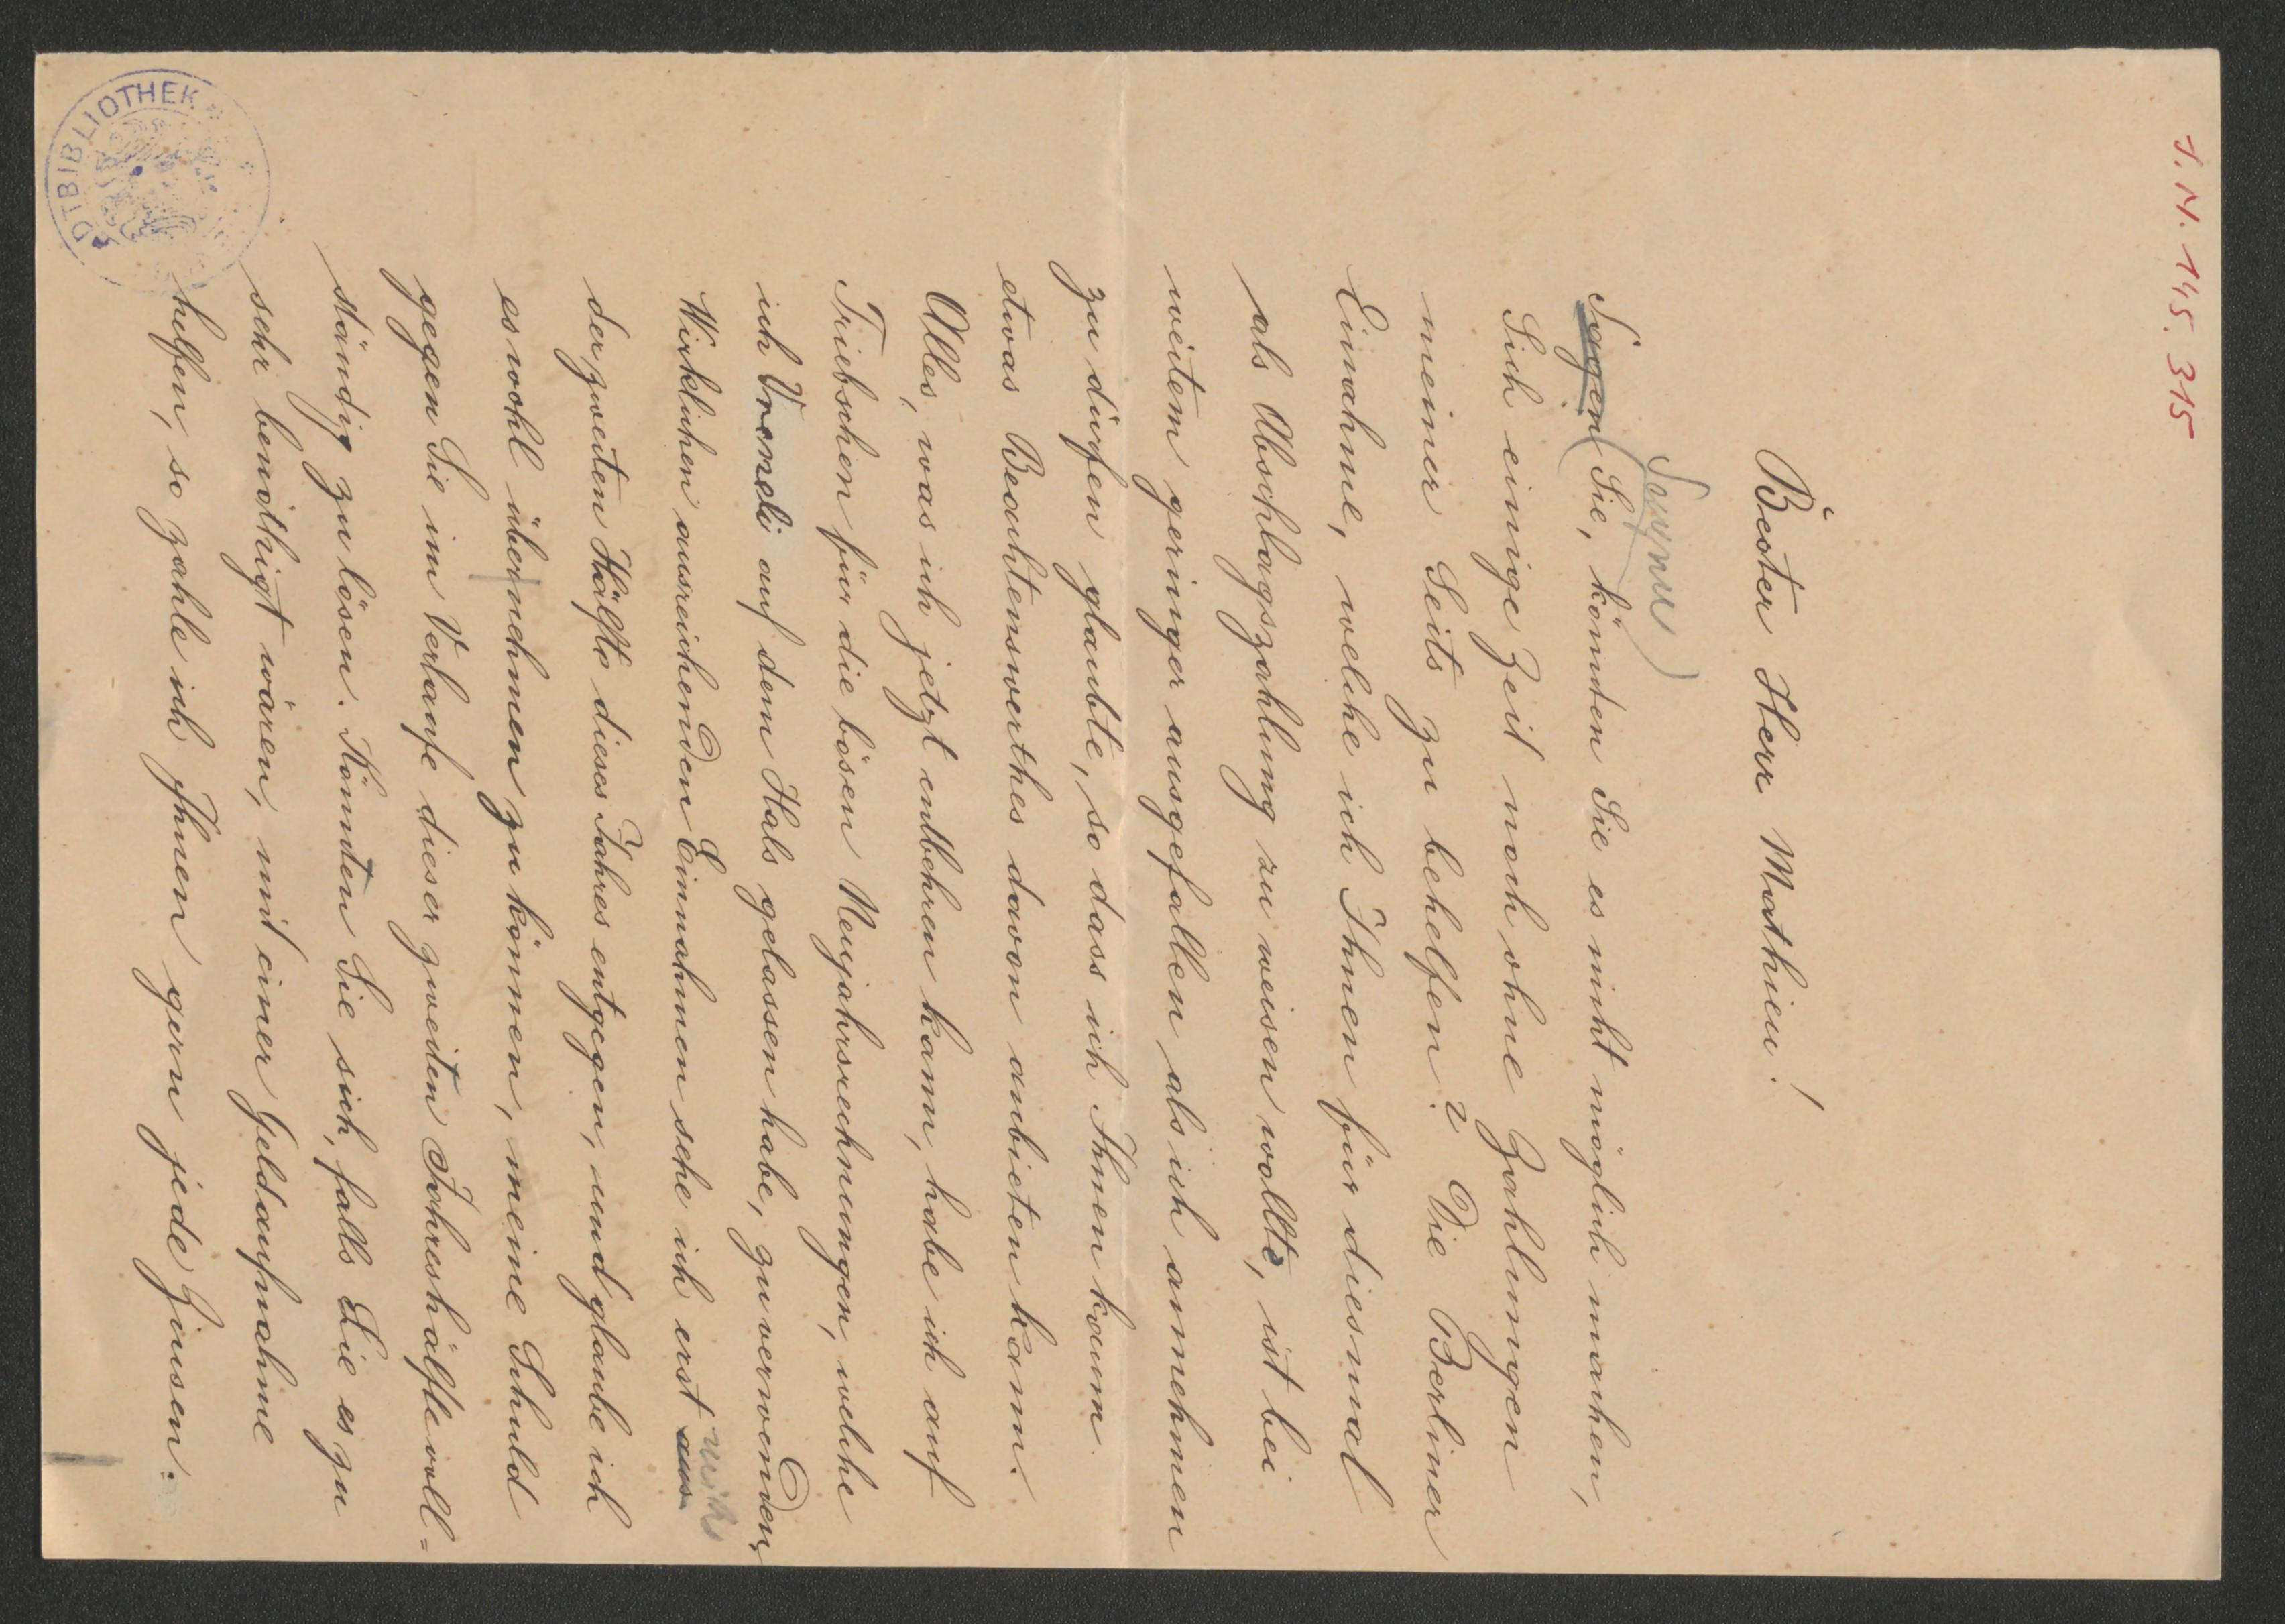 I. N. 145.315
Bester Herr Mathieu!
Sagen Sie, könnten Sie es nicht möglich machen,
Sich einige Zeit noch ohne Zahlungen
meiner Seits zu behelfen? Die Berliner
Einahme, welche ich Ihnen für diesmal
als Abschlagszahlung zu weisen wollte, ist bei
weitem geringer ausgefallen als ich annehmen
zu dürfen glaubte, so dass ich Ihnen kaum
etwas Beachtenswerthes davon anbieten kann.
Alles, was ich jetzt entbehren kann, habe ich auf
Triebschen für die bösen Neujahrsrechnungen, welche
ich Vreneli auf dem Hals gelassen habe, zu verwenden,
Wirklichen ausreichenden Einnahmen sehe ich erst aus
der zweiten Hälfte dieses Jahres entgegen, und glaube ich
es wohl übernehmen zu können, meine Schuld
gegen Sie im Verlaufe dieser zweiten Jahreshälfte voll=
ständig zu lösen. Könnten Sie sich, falls Sie es zu
sehr benöthigt wären, mit einer Geldaufnahme
helfen, so zahle ich Ihnen gern jede Zinsen.
DTBIBLIOTHEK